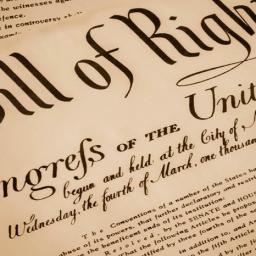 the witnesses against
fence.
in controversy
Bill of Righ
ongreſs OF THE Unit
begun and held at the City of N
Wednesday, the fourth of March, one thousan
The Conventions of a number of the States ha
abuse of its powers, that further declaratory and restri
the beneficent ends of its institution.
Resolved by the SENATE and HOUS
that the following Articles
ified by three fourths of the
in addition to, and A
the fifth Article